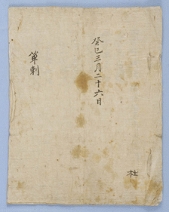 癸巳三月二十六日
單剳